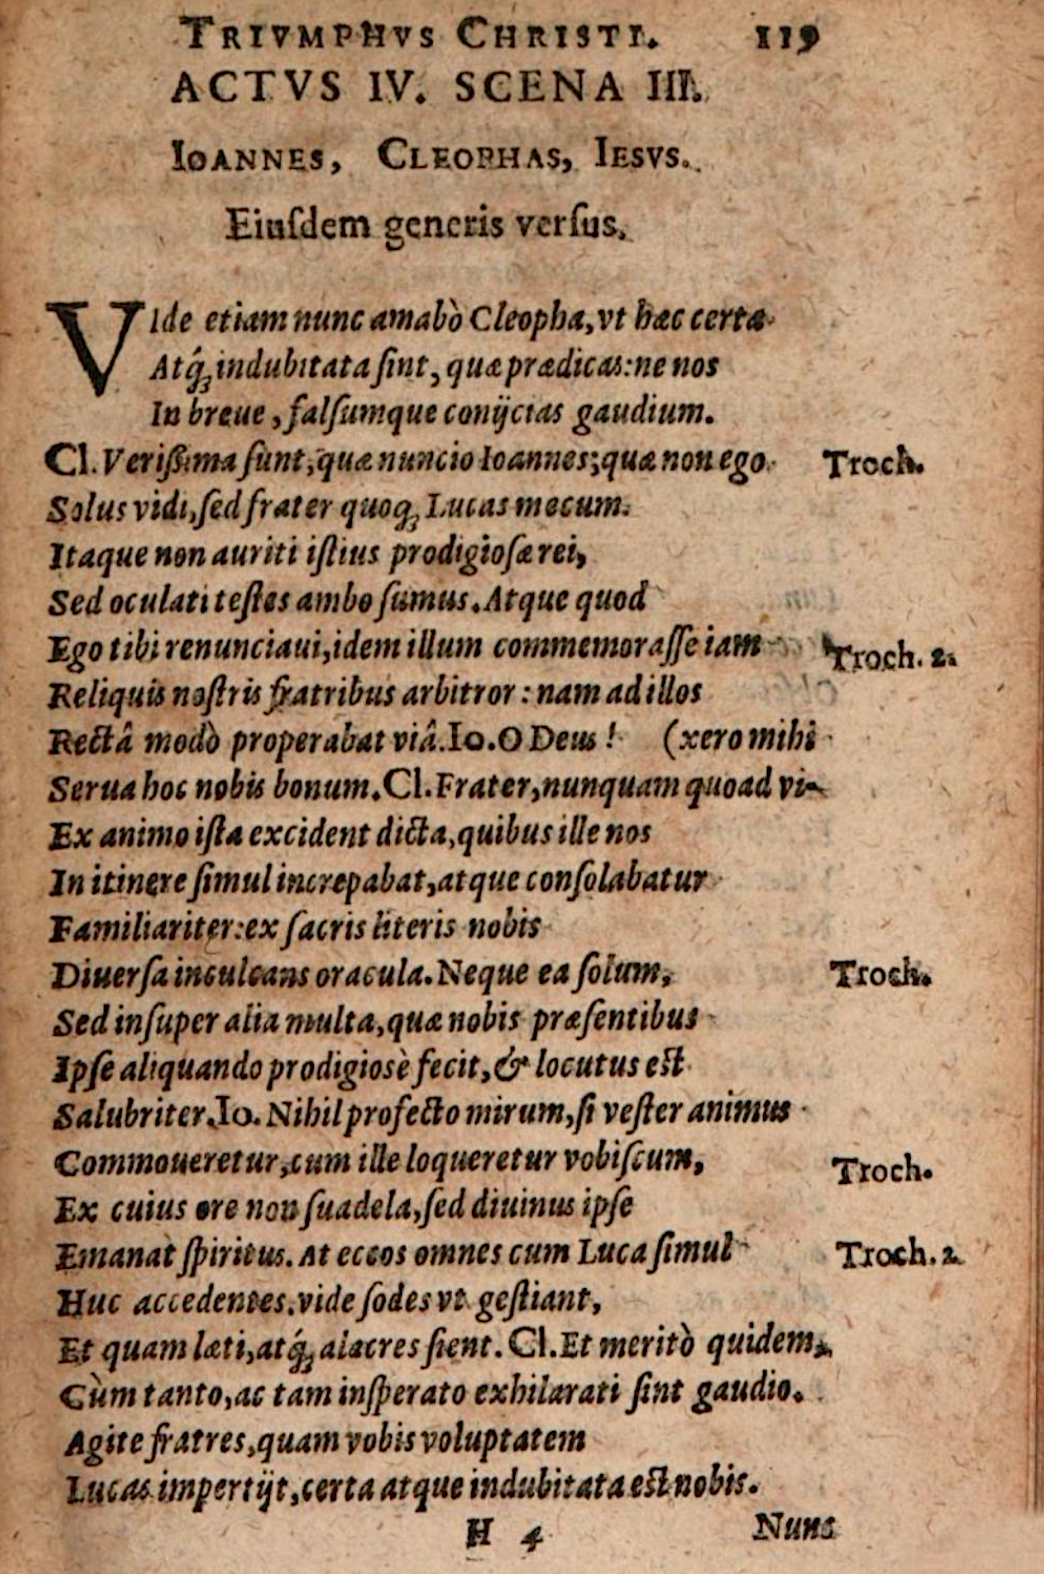 TRIVMPHVS CHRISTI. 119
ACTVS IV. SCENA III.
IOANNES, CLEOPHAS, IESVS.
Eiuſdem generis verſus.
VIde etiam nunc amabò Cleopha, vt hæc certa
Atq́ꝫ indubitata ſint, quæ prædicas: ne nos
In breue, falſumque conijcias gaudium.
Cl. Veriſsima ſunt, quæ nuncio Ioannes; quæ non ego Troch.
Solus vidi, ſed frater quoqꝫ Lucas mecum.
Itaque non auriti iſtius prodigioſæ rei,
Sed oculati teſtes ambo ſumus. Atque quod
Ego tibi renunciaui, idem illum commemoraſſe iam Troch. 2.
Reliquis noſtris fratribus arbitror: nam ad illos
Rectâ modò properabat viâ. Io. O Deus! (xero mihi
Serua hoc nobis bonum. Cl. Frater, nunquam quoad vi-
Ex animo iſta excident dicta, quibus ille nos
In itinere ſimul increpabat, atque conſolabatur
Familiariter: ex ſacris literis nobis
Diuerſa inculcans oracula. Neque ea ſolum, Troch.
Sed inſuper alia multa, quæ nobis præſentibus
Ipſe aliquando prodigiosè fecit, & locutus eſt
Salubriter. Io. Nihil profecto mirum, ſi veſter animus
Commoueretur, cum ille loqueretur vobiſcum, Troch.
Ex cuius ore non ſuadela, ſed diuinus ipſe
Emanat ſpiritus. At eccos omnes cum Luca ſimul Troch. 2
Huc accedentes. vide ſodes vt geſtiant,
Et quam læti, atq́ꝫ alacres ſient. Cl. Et meritò quidem,
Cùm tanto, ac tam inſperato exhilarati ſint gaudio.
Agite fratres, quam vobis voluptatem
Lucas impertijt, certa atque indubitata eſt nobis.
H 4 Nunc